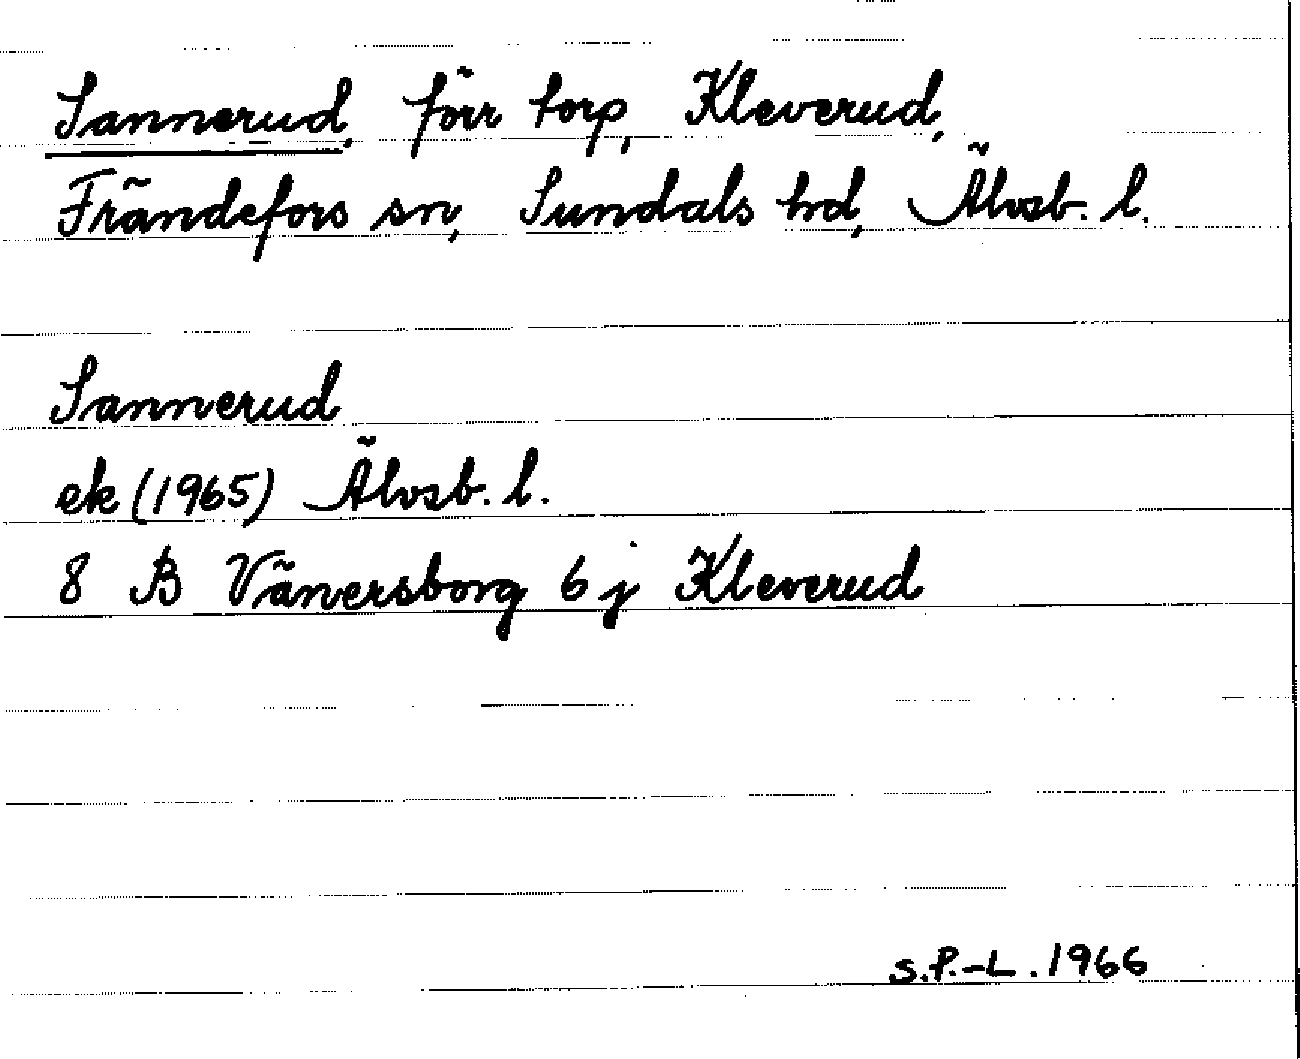 Sannerud, förr torp, Kleverud,
Frändefors sn, Sundals hd, Älvsb. l.
Sannerud
ek (1965) Älvsb. l.
8 B Vänersborg 6 j Kleverud
S.P.-L. 1966